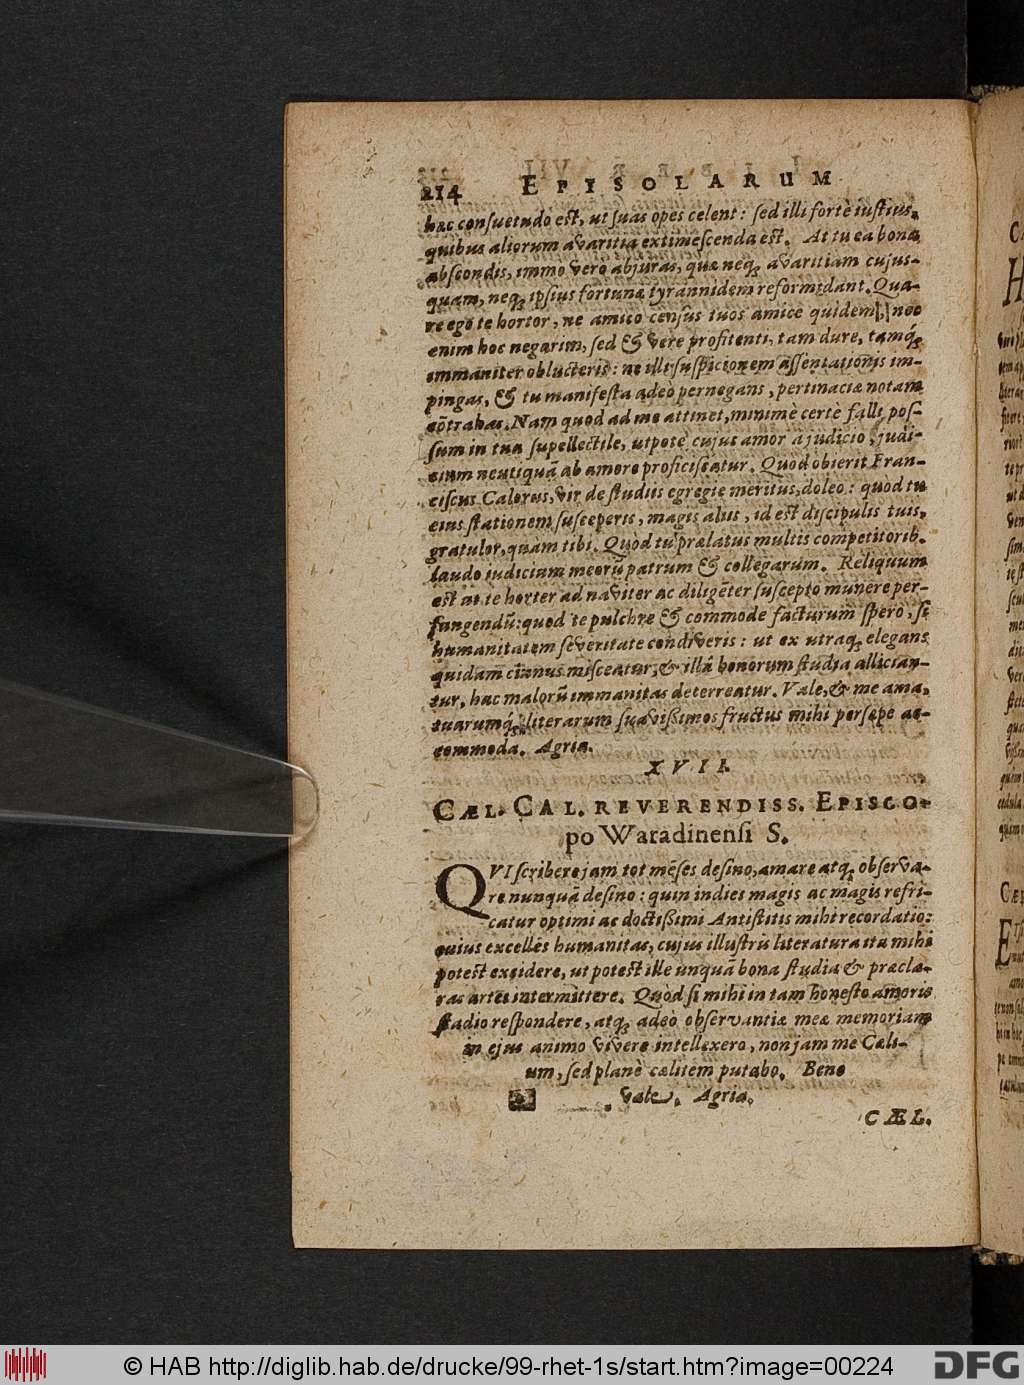 214 EPISOLARUM
hac consuetudo est, ut suas opes celent: sed illi fortè iustius,
quibus aliorum avaritia extimescenda est. At tu ea bona
abscondis, immo verò abjuras, quæ neq; avaritiam cujus-
quam, neq; ipsius fortunæ tyrannidem reformidant. Qua-
re ego te hortor, ne amico census tuos amicè quidem, nec
enim hoc negarim, sed & verè profitenti, tam dure, tamq́;
immaniter oblucteris: ne illi suspicionem assentationis im-
pingas, & tu manifesta adeò pernegans, pertinaciæ notam
cōtrahas. Nam quod ad me attinet, minimè certè falli pos-
sum in tua supellectile, utpote cujus amor à judicio, judi-
cium neutiquā ab amore proficiscatur. Quòd obierit Fran-
ciscus Calorus, vir de studiis egregiè meritus, doleo: quod tu
eius stationem susceperis, magis aliis, id est discipulis tuis,
gratulor, quàm tibi. Quòd tu prælatus multis competitorib.
laudo iudicium meorũ patrum & collegarum. Reliquum
est ut te horter ad naviter ac diligẽter suscepto munere per-
fungendũ: quod te pulchre & commode facturum spero, si
humanitatem severitate condiveris: ut ex utraq; elegans
quidam cinnus misceatur, & illâ bonorum studia allician-
tur, hac malorũ immanitas deterreatur. Vale, & me ama,
tuarumq́; literarum suavißimos fructus mihi persæpe ac-
commoda. Agria.
XVII.
CÆL. CAL. REVERENDISS. EPISCO-
po Waradinensi S.
QVI scribere jam tot mẽses desino, amare atq; observa-
re nunquā desino: quin indies magis ac magis refri-
catur optimi ac doctißimi Antistitis mihi recordatio:
quius excellẽs humanitas, cujus illustris literatura ita mihi
potest excidere, ut potest ille unquā bona studia & præcla-
ras artes intermittere. Quòd si mihi in tam honesto amoris
stadio respondere, atq; adeò observantiæ meæ memoriam
in ejus animo vivere intellexero, non jam me Cæli-
um, sed planè cælitem putabo. Bene
vale. Agria.
CÆL.
© HAB http://diglib.hab.de/drucke/99-rhet-1s/start.htm?image=00224
DFG